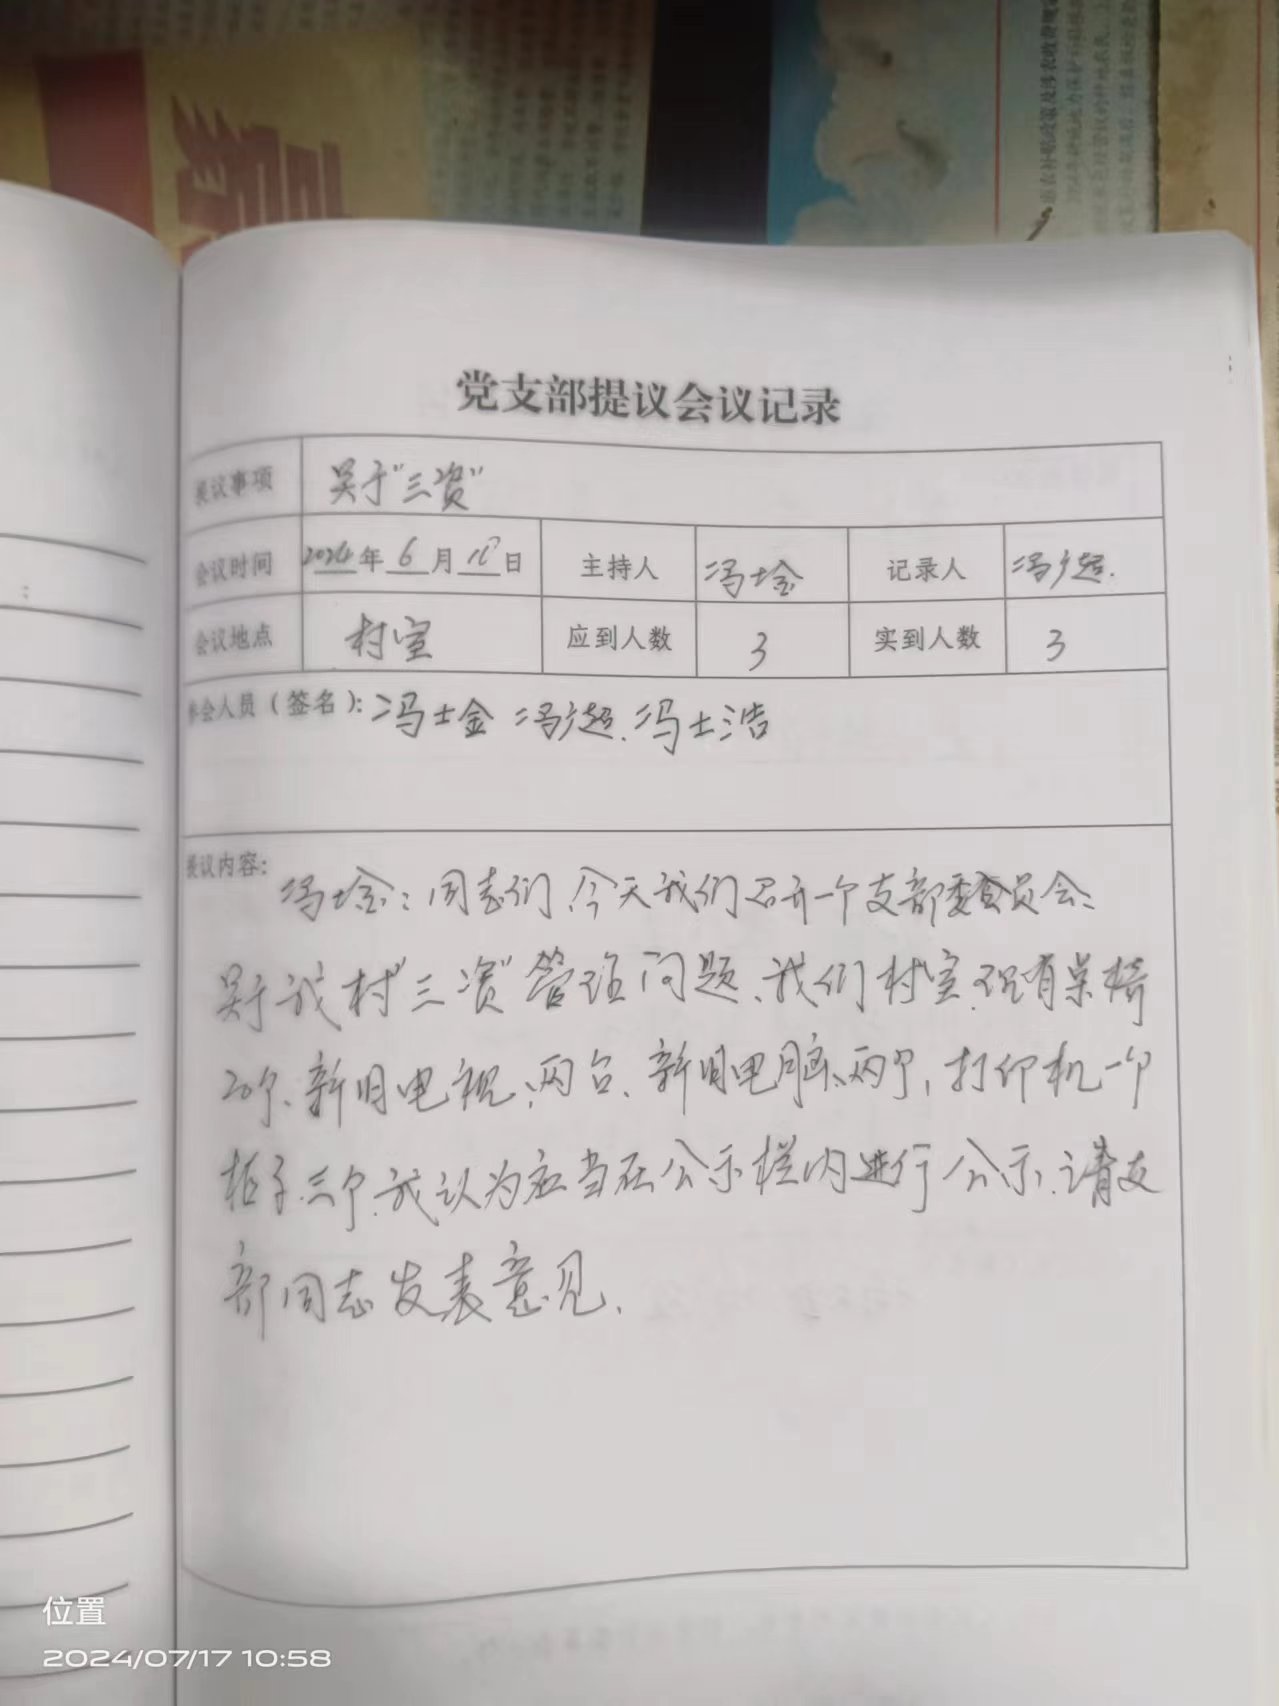 党支部提议会议记录
提议事项 关于"三资"
会议时间 2024年6月 日 主持人 冯士金 记录人 冯广超.
会议地点 村室 应到人数 3 实到人数 3
参会人员（签名）：冯士金 冯广超.冯士浩
提议内容：
冯士金：同志们、今天我们召开一个支部委员会：
关于我村"三资"管理问题、我们村室现有桌椅
20个、新旧电视、两台、新旧电脑、两个，打印机一个
柜子三个.我认为应当在公示栏内进行公示.请支
部同志发表意见.
位置
2024/07/17 10:58